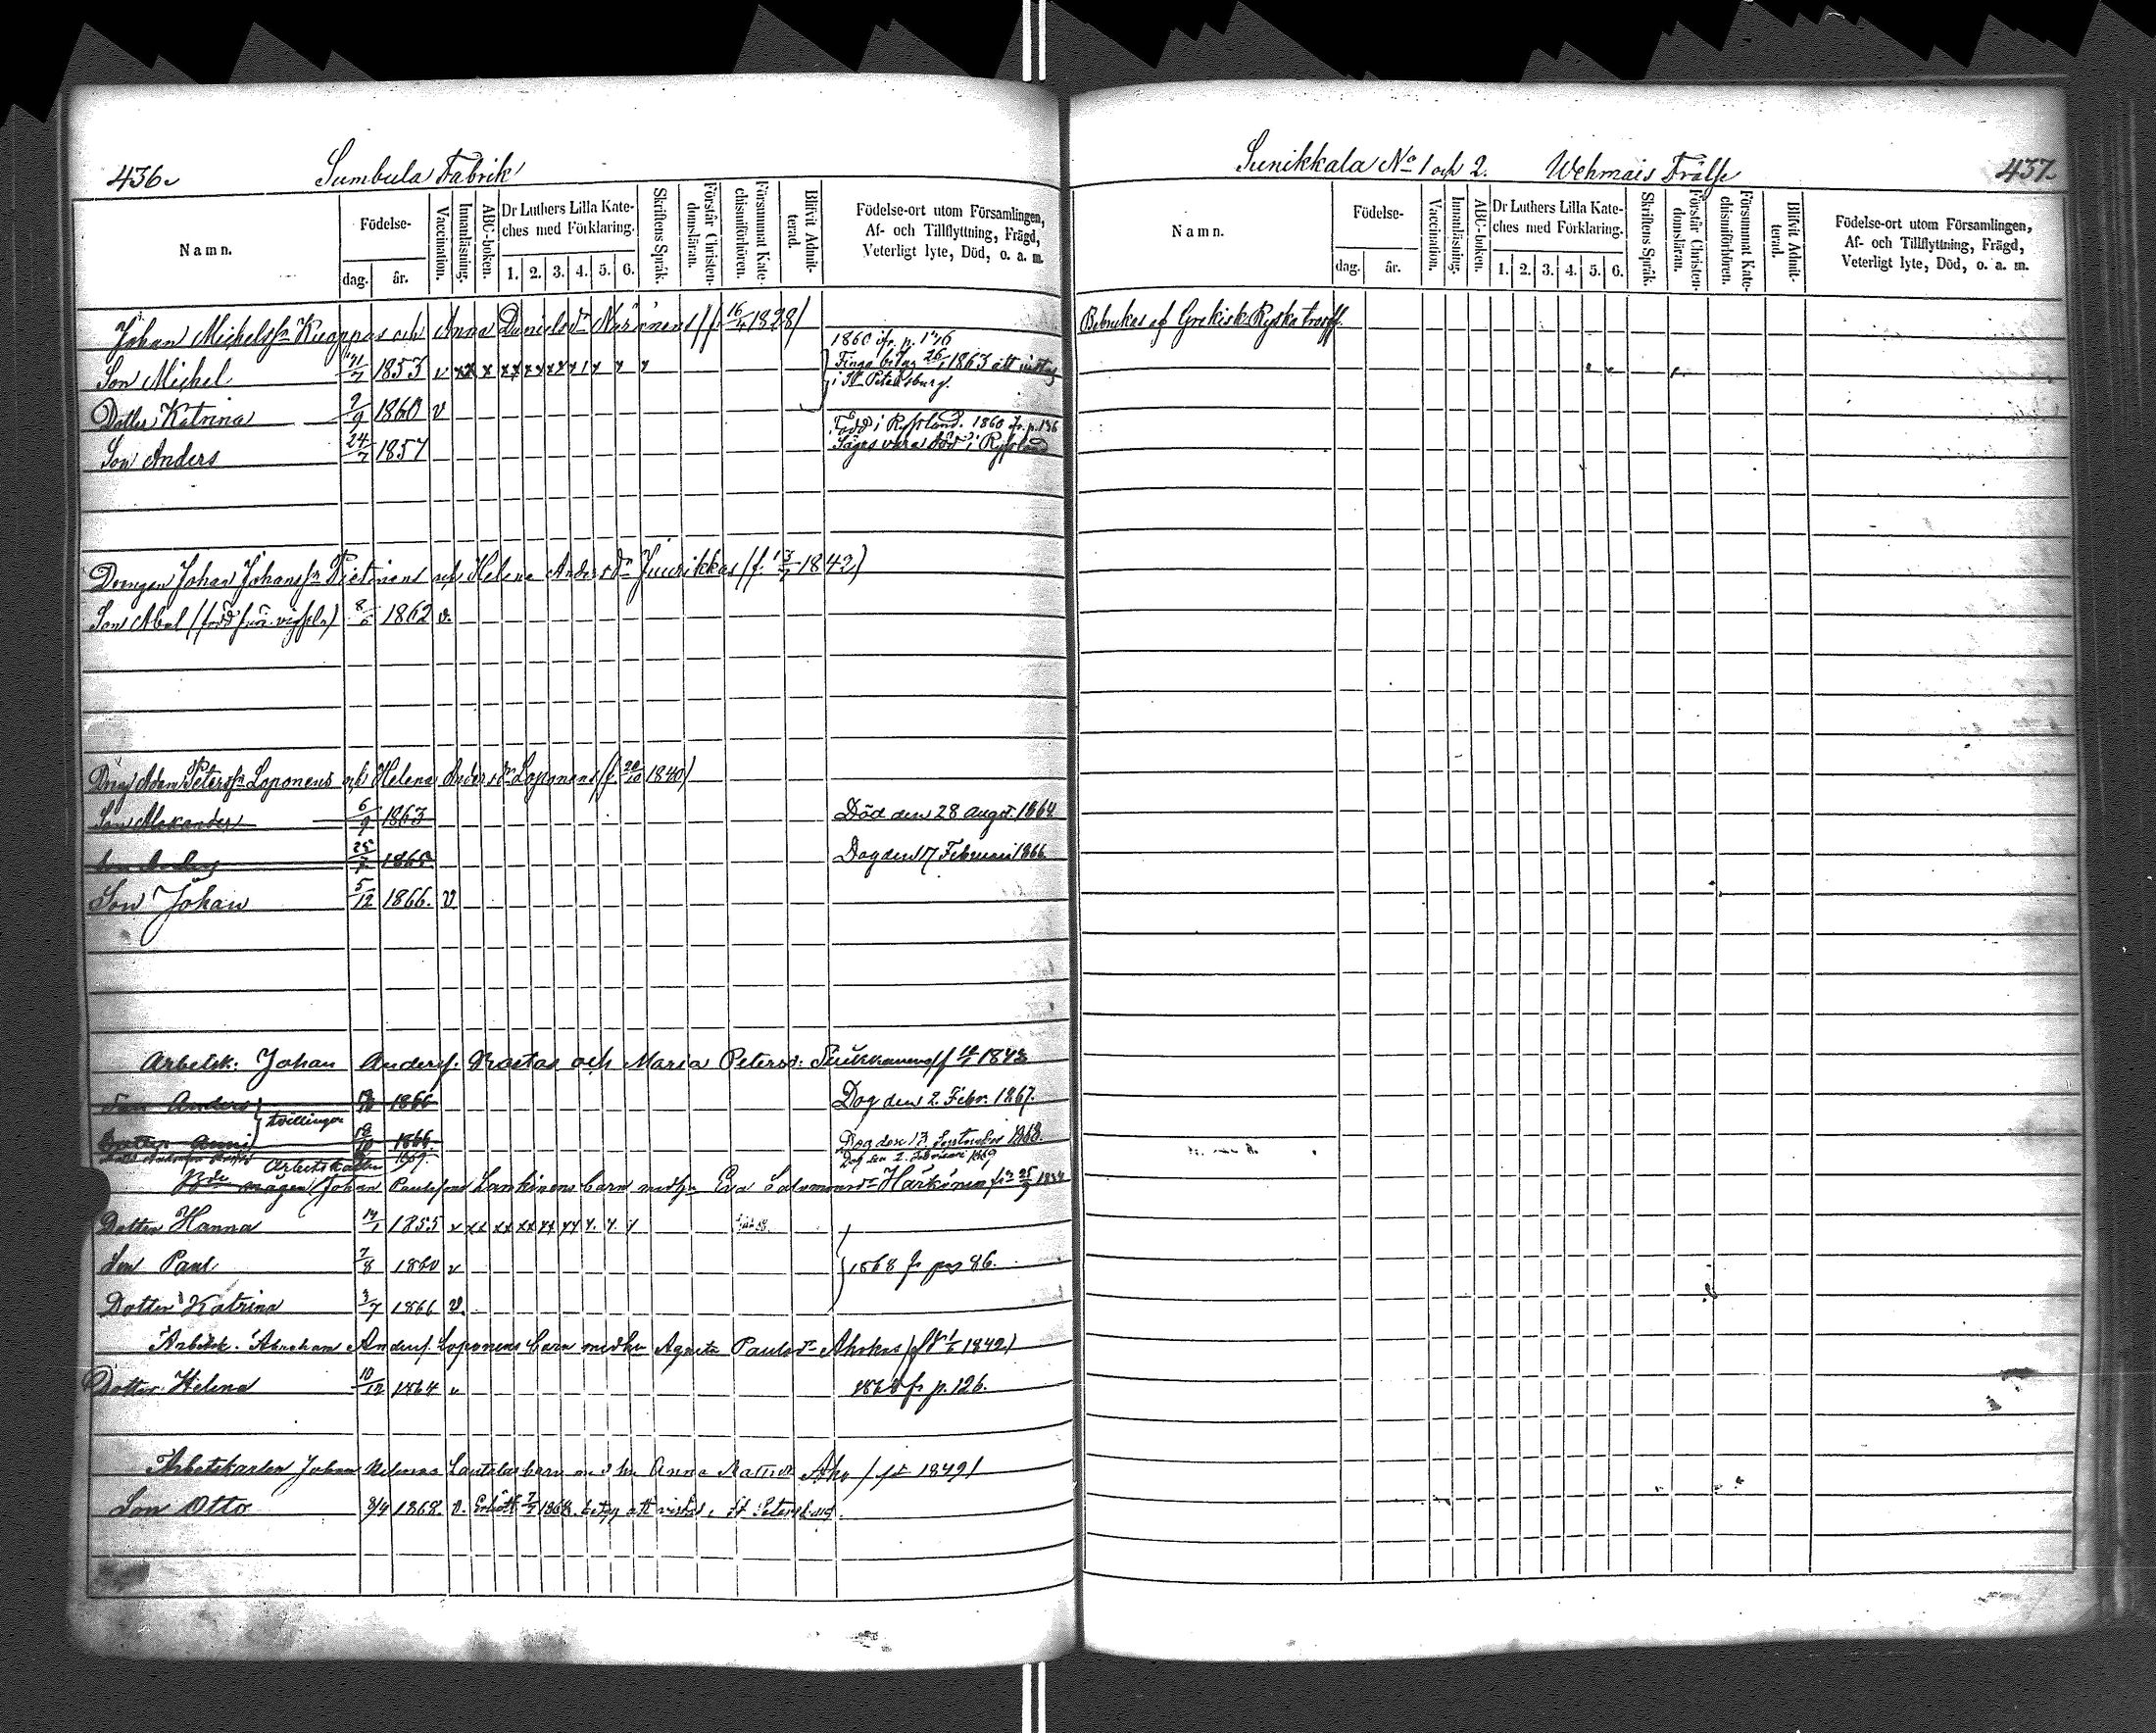 436. Sumbula Fabrik
Namn.
Födelse-
dag. år.
Vaccination.
Innanläsning.
ABC-boken.
Dr Luthers Lilla Kate-
ches med Förklaring.
1. 2. 3. 4. 5. 6.
Skriftens Språk.
Förstår Christen-
domsläran.
Försummat Kate-
chismiförhören.
Blifvit Admit-
terad.
Födelse-ort utom Församlingen,
Af- och Tillflyttning, Frägd,
Veterligt lyte, Död, o. a. m.
Johan Michelss. Knappas och Anna Danielsdr (f. 16/4 1828)
1860 fr. p. 176
Son Michel 1853 v xx x xx xx xx x x x x
26/1 1863 att vistas
i St. Petersburg.
Dotter Katrina 2/9 1860 v
Född i Ryssland. 1860 fr. p. 136
Son Anders 24/7 1857 Säges vara död i Ryssland
Drengen Johan Johanss. och Helena Andersdr Juurikkas (f. 1842)
Son Abel (född före vigseln) 8/6 1862 v.
Dräng Adam Peterss. Loponens och Helena Andersdr Loponens (f. 20/10 1840)
Son Alexander 6/9 1863 Död den 28 Augst. 1864
Son 25/7 1865 Dog den 17 Februari 1866
Son Johan 5/12 1866. v
Arbetsk. Johan Andersf. Rastas och Maria Petersd. 1843
Son Anders 1866 Dog den 2. Febr. 1867.
tvillingar
Dotter Anni 18/10 1866 Dog den 13. September 1868.
1869. Dog den 2. Februari 1869
Arbetskarlen
Johan Paulsson Lankinens barn med h. Eva Salomonsdr Härkönen 25/9 1834
Dotter Hanna 14/1 1855 v xx xx xx xx xx x. x. x
Son Paul 7/8 1860 v 1868 fr pag 86.
Dotter Katrina 3/7 1866 v.
Arbetsk. Abraham Andersf. Loponens barn med hu Agneta Paulsdr Ahokas 1842)
Dotter Helena 10/12 1864 v 1870 fr p. 126.
Arbetskarlen Johan barn med hu Anna Aho 1849)
Son Otto 3/4 1868. v. Erhöll 1868. betyg att vistas i St Petersburg.
Sunikkala No 1 och 2. Wehmais Frälse 437.
Namn.
Födelse-
dag. år.
Vaccination.
Innanläsning.
ABC-boken.
Dr Luthers Lilla Kate-
ches med Förklaring.
1. 2. 3. 4. 5. 6.
Skriftens Språk.
Förstår Christen-
domsläran.
Försummat Kate-
chismiförhören.
Blifvit Admit-
terad.
Födelse-ort utom Församlingen,
Af- och Tillflyttning, Frägd,
Veterligt lyte, Död, o. a. m.
Bebrukas af Grekisk-Ryska trosff.